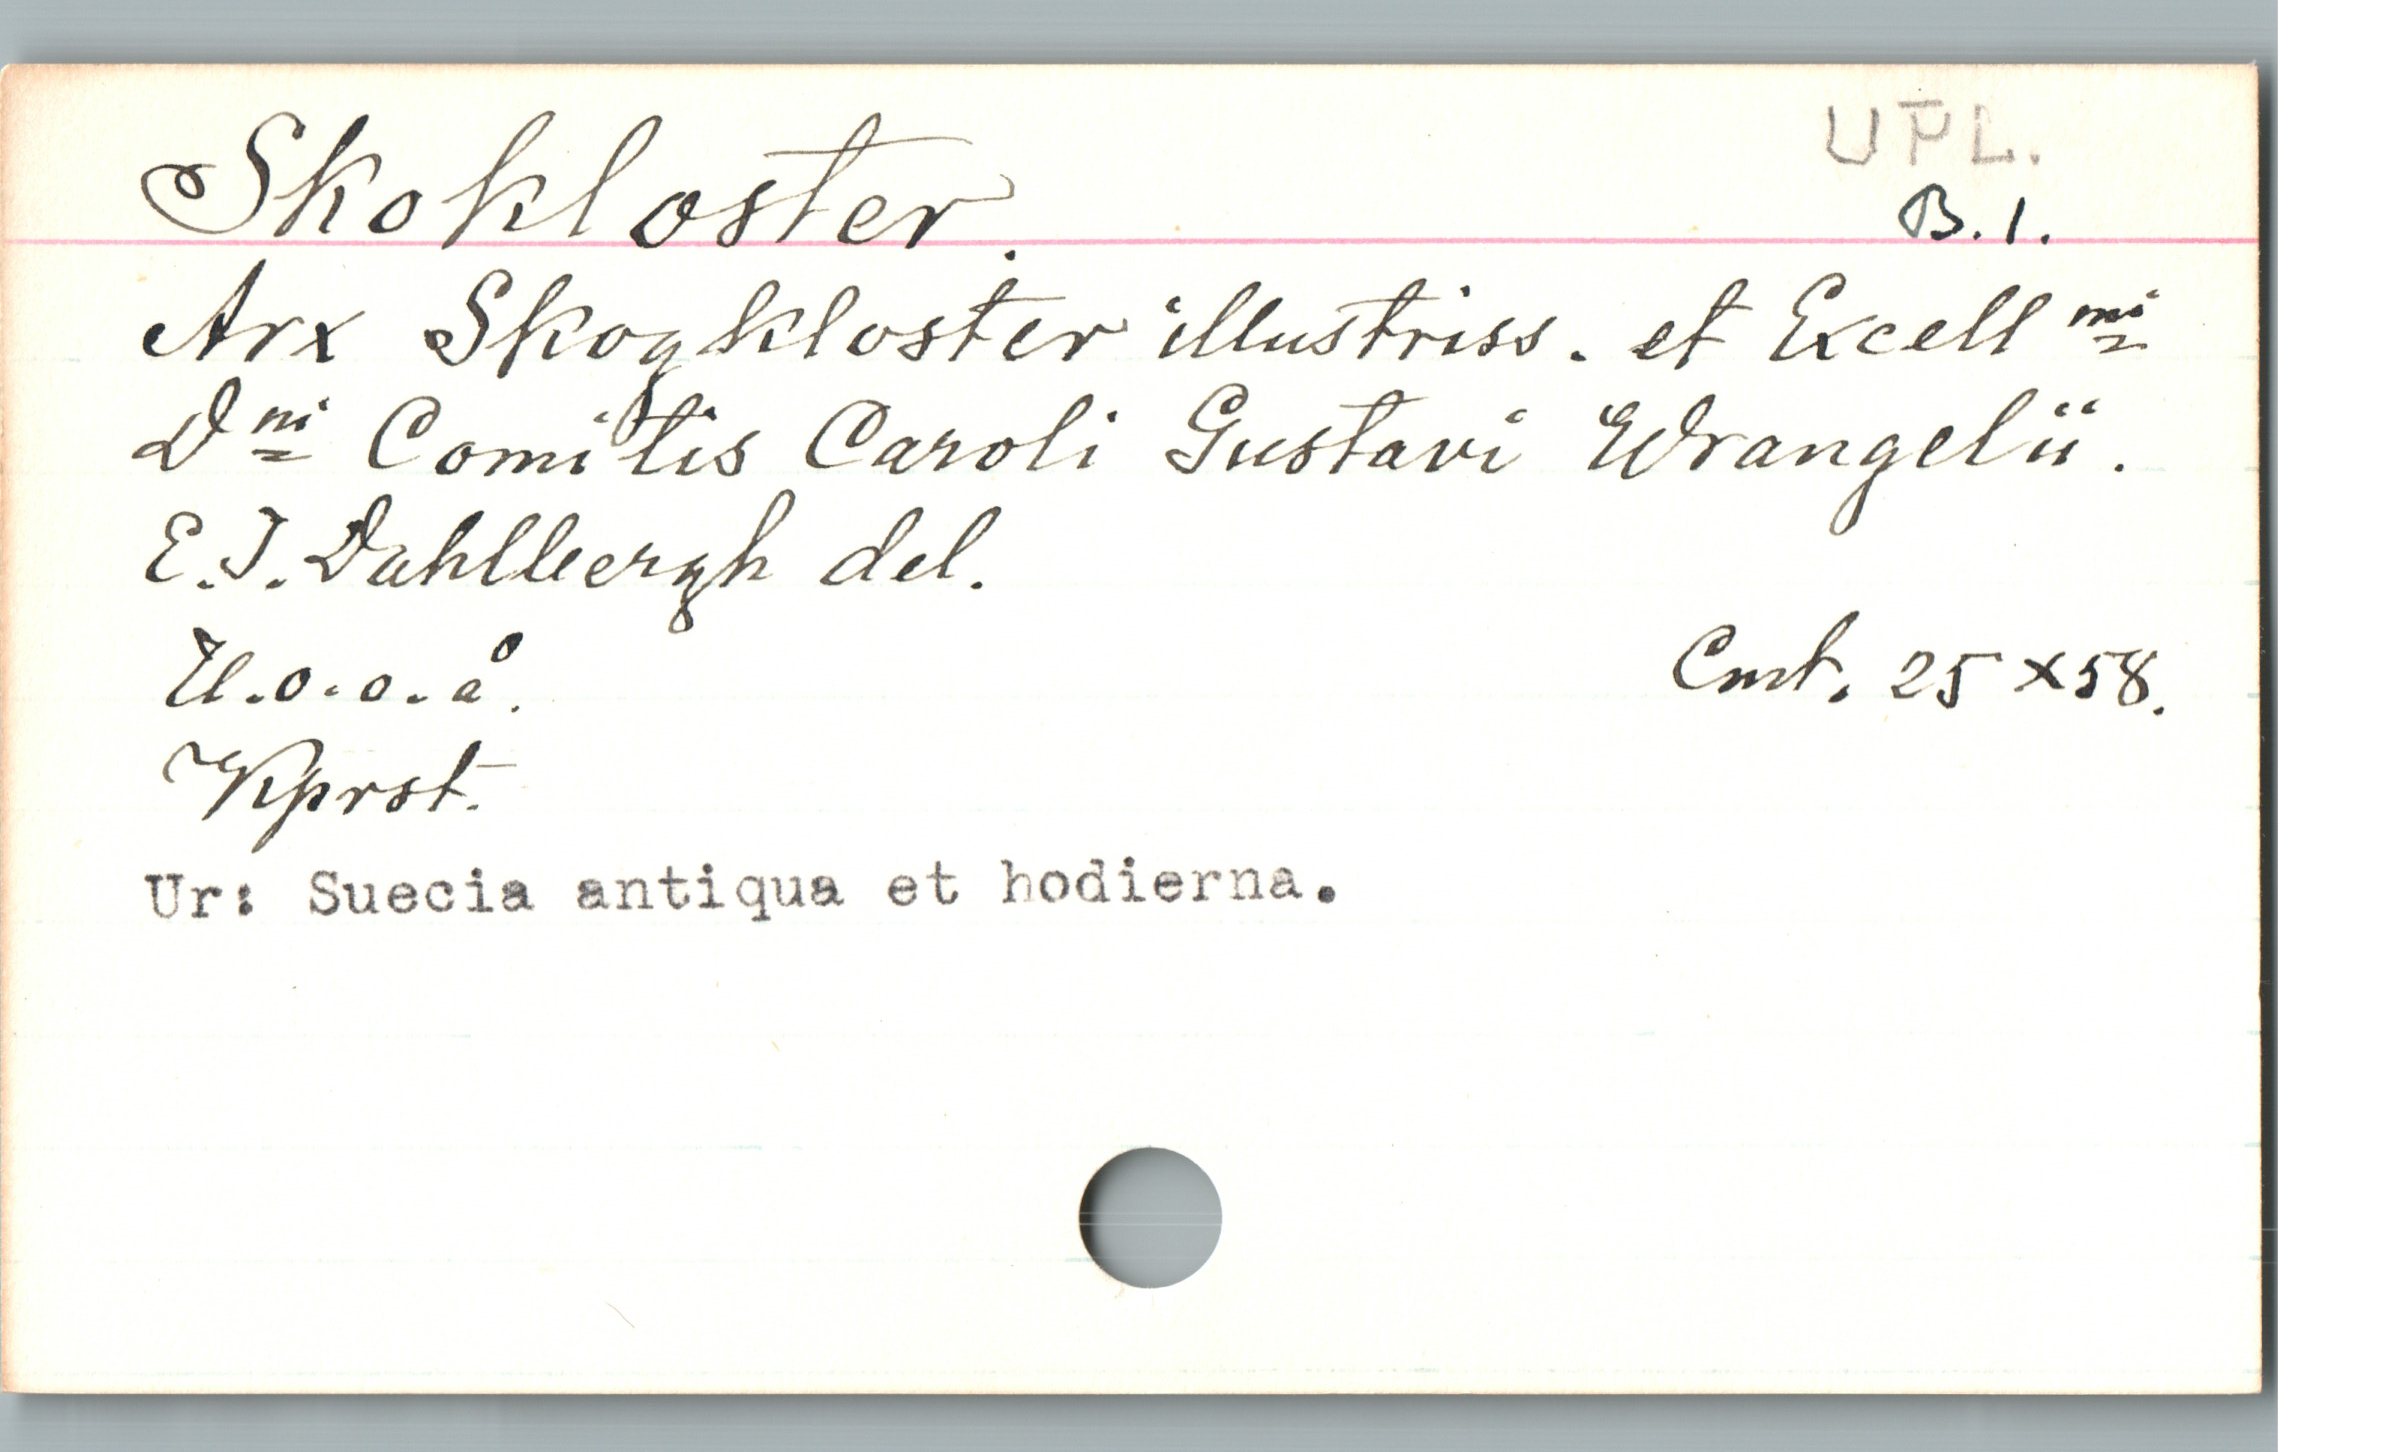 UPL.
Skokloster.
B. 1.
Arx Skogkloster illustriss. et Excell mi
Dni Comitis Caroli Gustavi Wrangelii.
E. J. Dahlbergh del.
U. o. o. å.
Cmt. 25 x 58.
Kprst.
Ur: Suecia antiqua et hodierna.